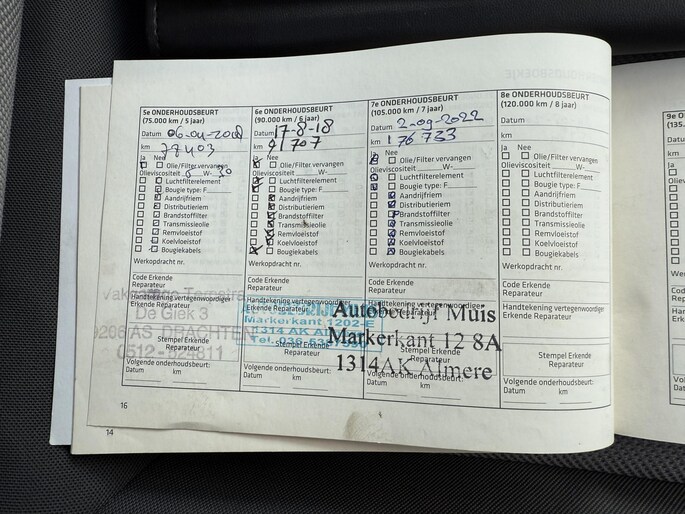 5e ONDERHOUDSBEURT
(75.000 km / 5 jaar)
Datum
km
Ja Nee
Olie/Filter vervangen
Olieviscositeit W-
Luchtfilterelement
Bougie type: F
Aandrijfriem
Distributieriem
Brandstoffilter
Transmissieolie
Remvloeistof
Koelvloeistof
Bougiekabels
Werkopdracht nr.
Code Erkende
Reparateur
Handtekening vertegenwoordiger
Erkende Reparateur
De Giek 3
9206 AS DRACHTEN
0512-524811
Stempel Erkende
Reparateur
Volgende onderhoudsbeurt:
Datum km
6e ONDERHOUDSBEURT
(90.000 km / 6 jaar)
Datum 17-8-18
km 91707
Ja Nee
Olie/Filter vervangen
Olieviscositeit W-
Luchtfilterelement
Bougie type: F
Aandrijfriem
Distributieriem
Brandstoffilter
Transmissieolie
Remvloeistof
Koelvloeistof
Bougiekabels
Werkopdracht nr.
Code Erkende
Reparateur
Handtekening vertegenwoordiger
Erkende Reparateur
Markerkant 1202-E
Stempel Erkende
Reparateur
Volgende onderhoudsbeurt:
Datum km
7e ONDERHOUDSBEURT
(105.000 km / 7 jaar)
Datum 2-09-2022
km 176733
Ja Nee
Olie/Filter vervangen
Olieviscositeit W-
Luchtfilterelement
Bougie type: F
Aandrijfriem
Distributieriem
Brandstoffilter
Transmissieolie
Remvloeistof
Koelvloeistof
Bougiekabels
Werkopdracht nr.
Code Erkende
Reparateur
Handtekening vertegenwoordiger
Erkende Reparateur
Autobedrijf Muis
Markerkant 12 8A
1314AK Almere
Stempel Erkende
Reparateur
Volgende onderhoudsbeurt:
Datum km
8e ONDERHOUDSBEURT
(120.000 km / 8 jaar)
Datum
km
Ja Nee
Olie/Filter vervangen
Olieviscositeit W-
Luchtfilterelement
Bougie type: F
Aandrijfriem
Distributieriem
Brandstoffilter
Transmissieolie
Remvloeistof
Koelvloeistof
Bougiekabels
Werkopdracht nr.
Code Erkende
Reparateur
Handtekening vertegenwoordiger
Erkende Reparateur
Stempel Erkende
Reparateur
Volgende onderhoudsbeurt:
Datum km
16
14
9e O
(135.
Datum
km
Ja Nee